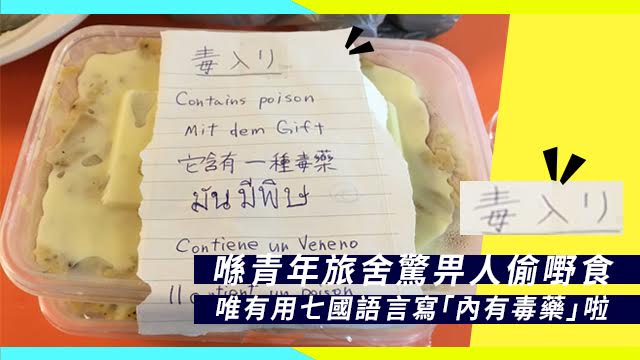 毒入り
Contains poison
Mit dem Gift
它含有一種毒藥
มัน มีพิษ
Contiene un Veneno
Il contient un poison
毒入り
喺青年旅舍驚畀人偷嘢食
唯有用七國語言寫「內有毒藥」啦